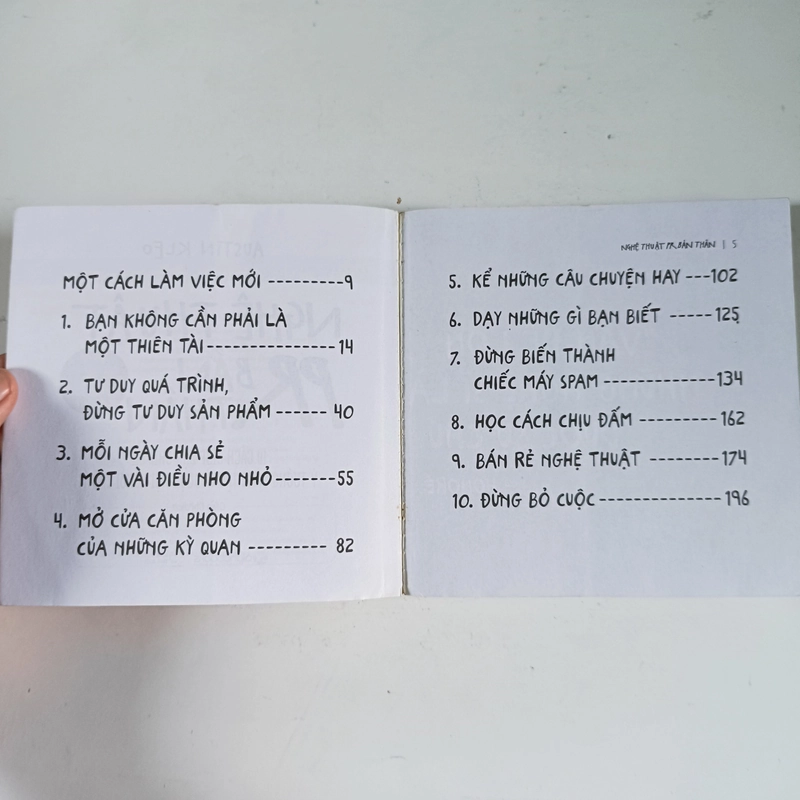 MỘT CÁCH LÀM VIỆC MỚI ---------9
1. BẠN KHÔNG CẦN PHẢI LÀ
MỘT THIÊN TÀI---------------14
2. TƯ DUY QUÁ TRÌNH,
ĐỪNG TƯ DUY SẢN PHẨM ------ 40
3. MỖI NGÀY CHIA SẺ
MỘT VÀI ĐIỀU NHO NHỎ-------55
4. MỞ CỬA CĂN PHÒNG
CỦA NHỮNG KỲ QUAN --------- 82
NGHỆ THUẬT PR BẢN THÂN | 5
5. KỂ NHỮNG CÂU CHUYỆN HAY ---102
6. DẠY NHỮNG GÌ BẠN BIẾT -----125
7. ĐỪNG BIẾN THÀNH
CHIẾC MÁY SPAM -------------134
8. HỌC CÁCH CHỊU ĐẤM --------162
9. BÁN RẺ NGHỆ THUẬT --------174
10. ĐỪNG BỎ CUỘC--------------196